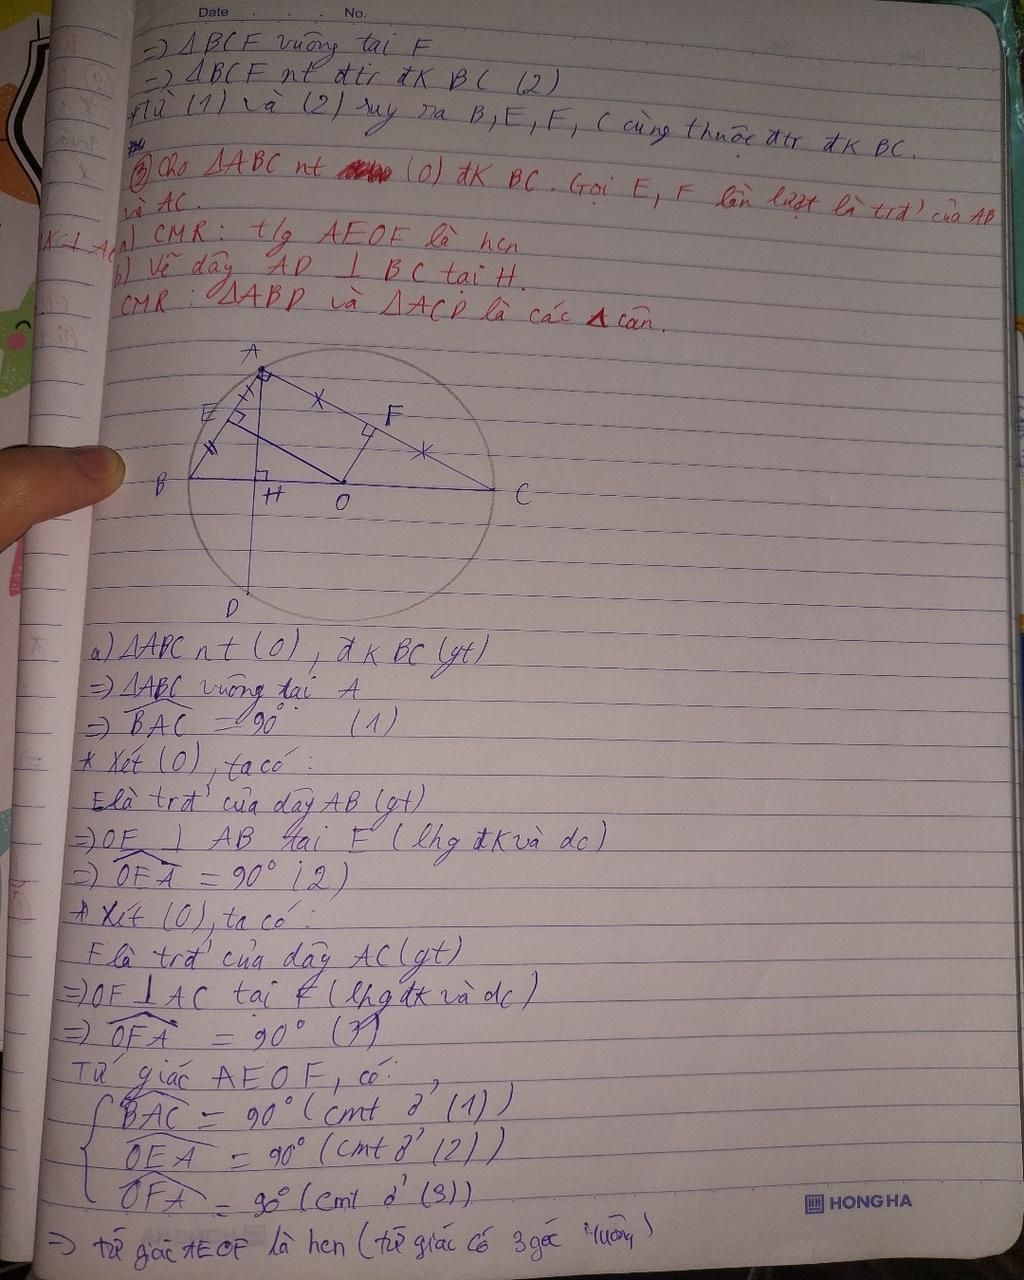 Date . . . No.
=) ΔBCF vuông tại F
=) ΔBCF nt đtr đk BC (2)
*Từ (1) và (2) suy ra B, E, F, C cùng thuộc đtr đk BC.
③ Cho ΔABC nt (O) đk BC. Gọi E, F lần lượt là trđ' của AB
và AC.
a) CMR: t/g AEOF là hcn
b) Vẽ dây AD ⊥ BC tại H.
CMR: ΔABD và ΔACD là các Δ cân.
A
E
F
B
H
O
C
D
a) ΔABC nt (O), đk BC (gt)
=) ΔABC vuông tại A
=) BAC = 90° (1)
* Xét (O), ta có:
E là trđ' của dây AB (gt)
=) OE ⊥ AB tại E (lhg đk và dc)
=) OEA = 90° (2)
* Xét (O), ta có:
F là trđ' của dây AC (gt)
=) OF ⊥ AC tại F (lhg đk và dc)
=) OFA = 90° (3)
Tứ giác AEOF, có:
BAC = 90° (cmt ở (1))
OEA = 90° (cmt ở (2))
OFA = 90° (cmt ở (3))
HH HONG HA
=) tứ giác AEOF là hcn (tứ giác có 3 góc vuông)